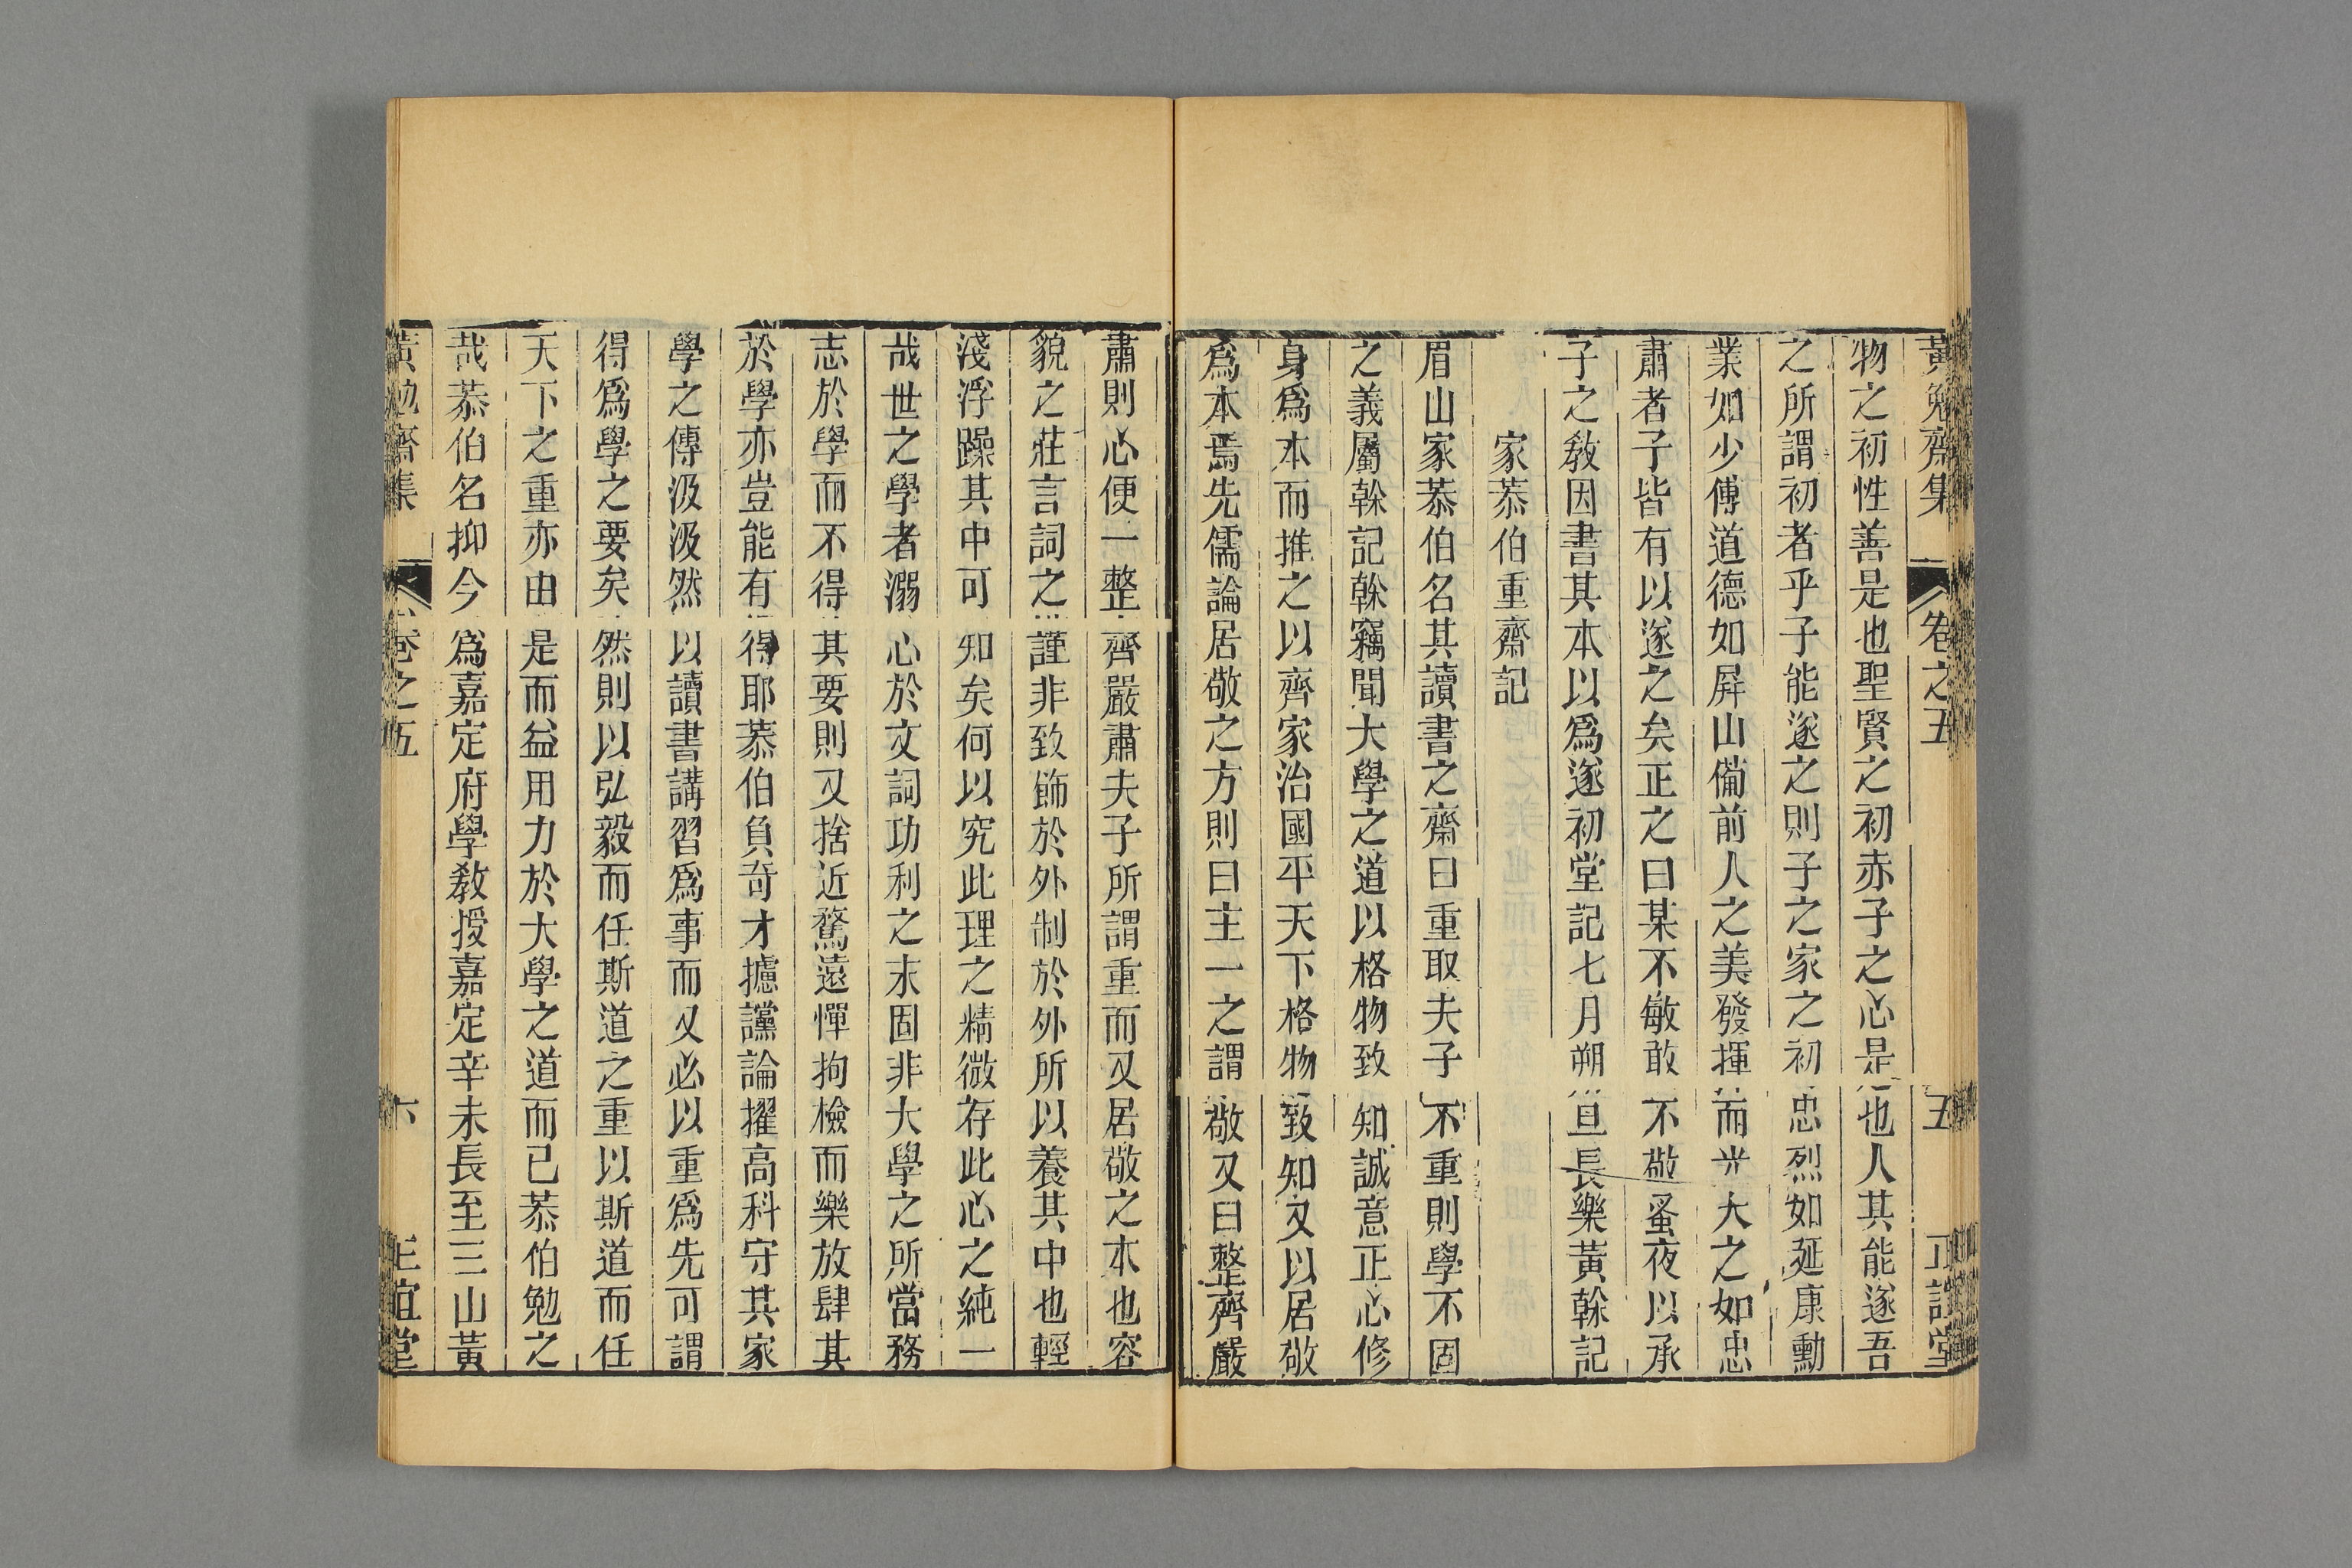 黃勉齋集 卷之五 五 正誼堂
物之初性善是也聖賢之初赤子之心是也人其能遂吾
之所謂初者乎子能遂之則子之家之初忠烈如延康勳
業如少傅道德如屏山備前人之美發揮而光大之如忠
肅者子皆有以遂之矣正之曰某不敏敢不敬蚤夜以承
子之敎因書其本以爲遂初堂記七月朔旦長樂黃榦記
家恭伯重齋記
眉山家恭伯名其讀書之齋曰重取夫子不重則學不固
之義屬榦記榦竊聞大學之道以格物致知誠意正心修
身爲本而推之以齊家治國平天下格物致知又以居敬
爲本焉先儒論居敬之方則曰主一之謂敬又曰整齊嚴
肅則心便一整齊嚴肅夫子所謂重而又居敬之本也容
貌之莊言詞之謹非致飾於外制於外所以養其中也輕
淺浮躁其中可知矣何以究此理之精微存此心之純一
哉世之學者溺心於文詞功利之末固非大學之所當務
志於學而不得其要則又捨近騖遠憚拘檢而樂放肆其
於學亦豈能有得耶恭伯負奇才攄讜論擢高科守其家
學之傳汲汲然以讀書講習爲事而又必以重爲先可謂
得爲學之要矣然則以弘毅而任斯道之重以斯道而任
天下之重亦由是而益用力於大學之道而已恭伯勉之
哉恭伯名抑今爲嘉定府學敎授嘉定辛未長至三山黃
黃勉齋集 卷之五 六 正誼堂